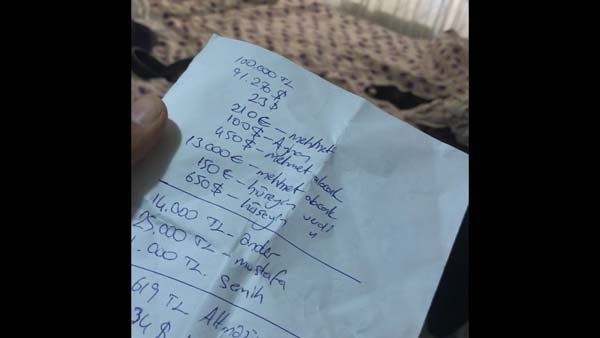 100.000 TL
91.270 $
23 $
210 € - mehmet
100 $ - Ayhan
450 $ - mehmet abcak
13.000 € - mehmet abcak
150 € - hüseyin verdi
650 $ - hüseyin "
14.000 TL - önder
25.000 TL - mustafa
.000 TL. Semih
619 TL
34 $